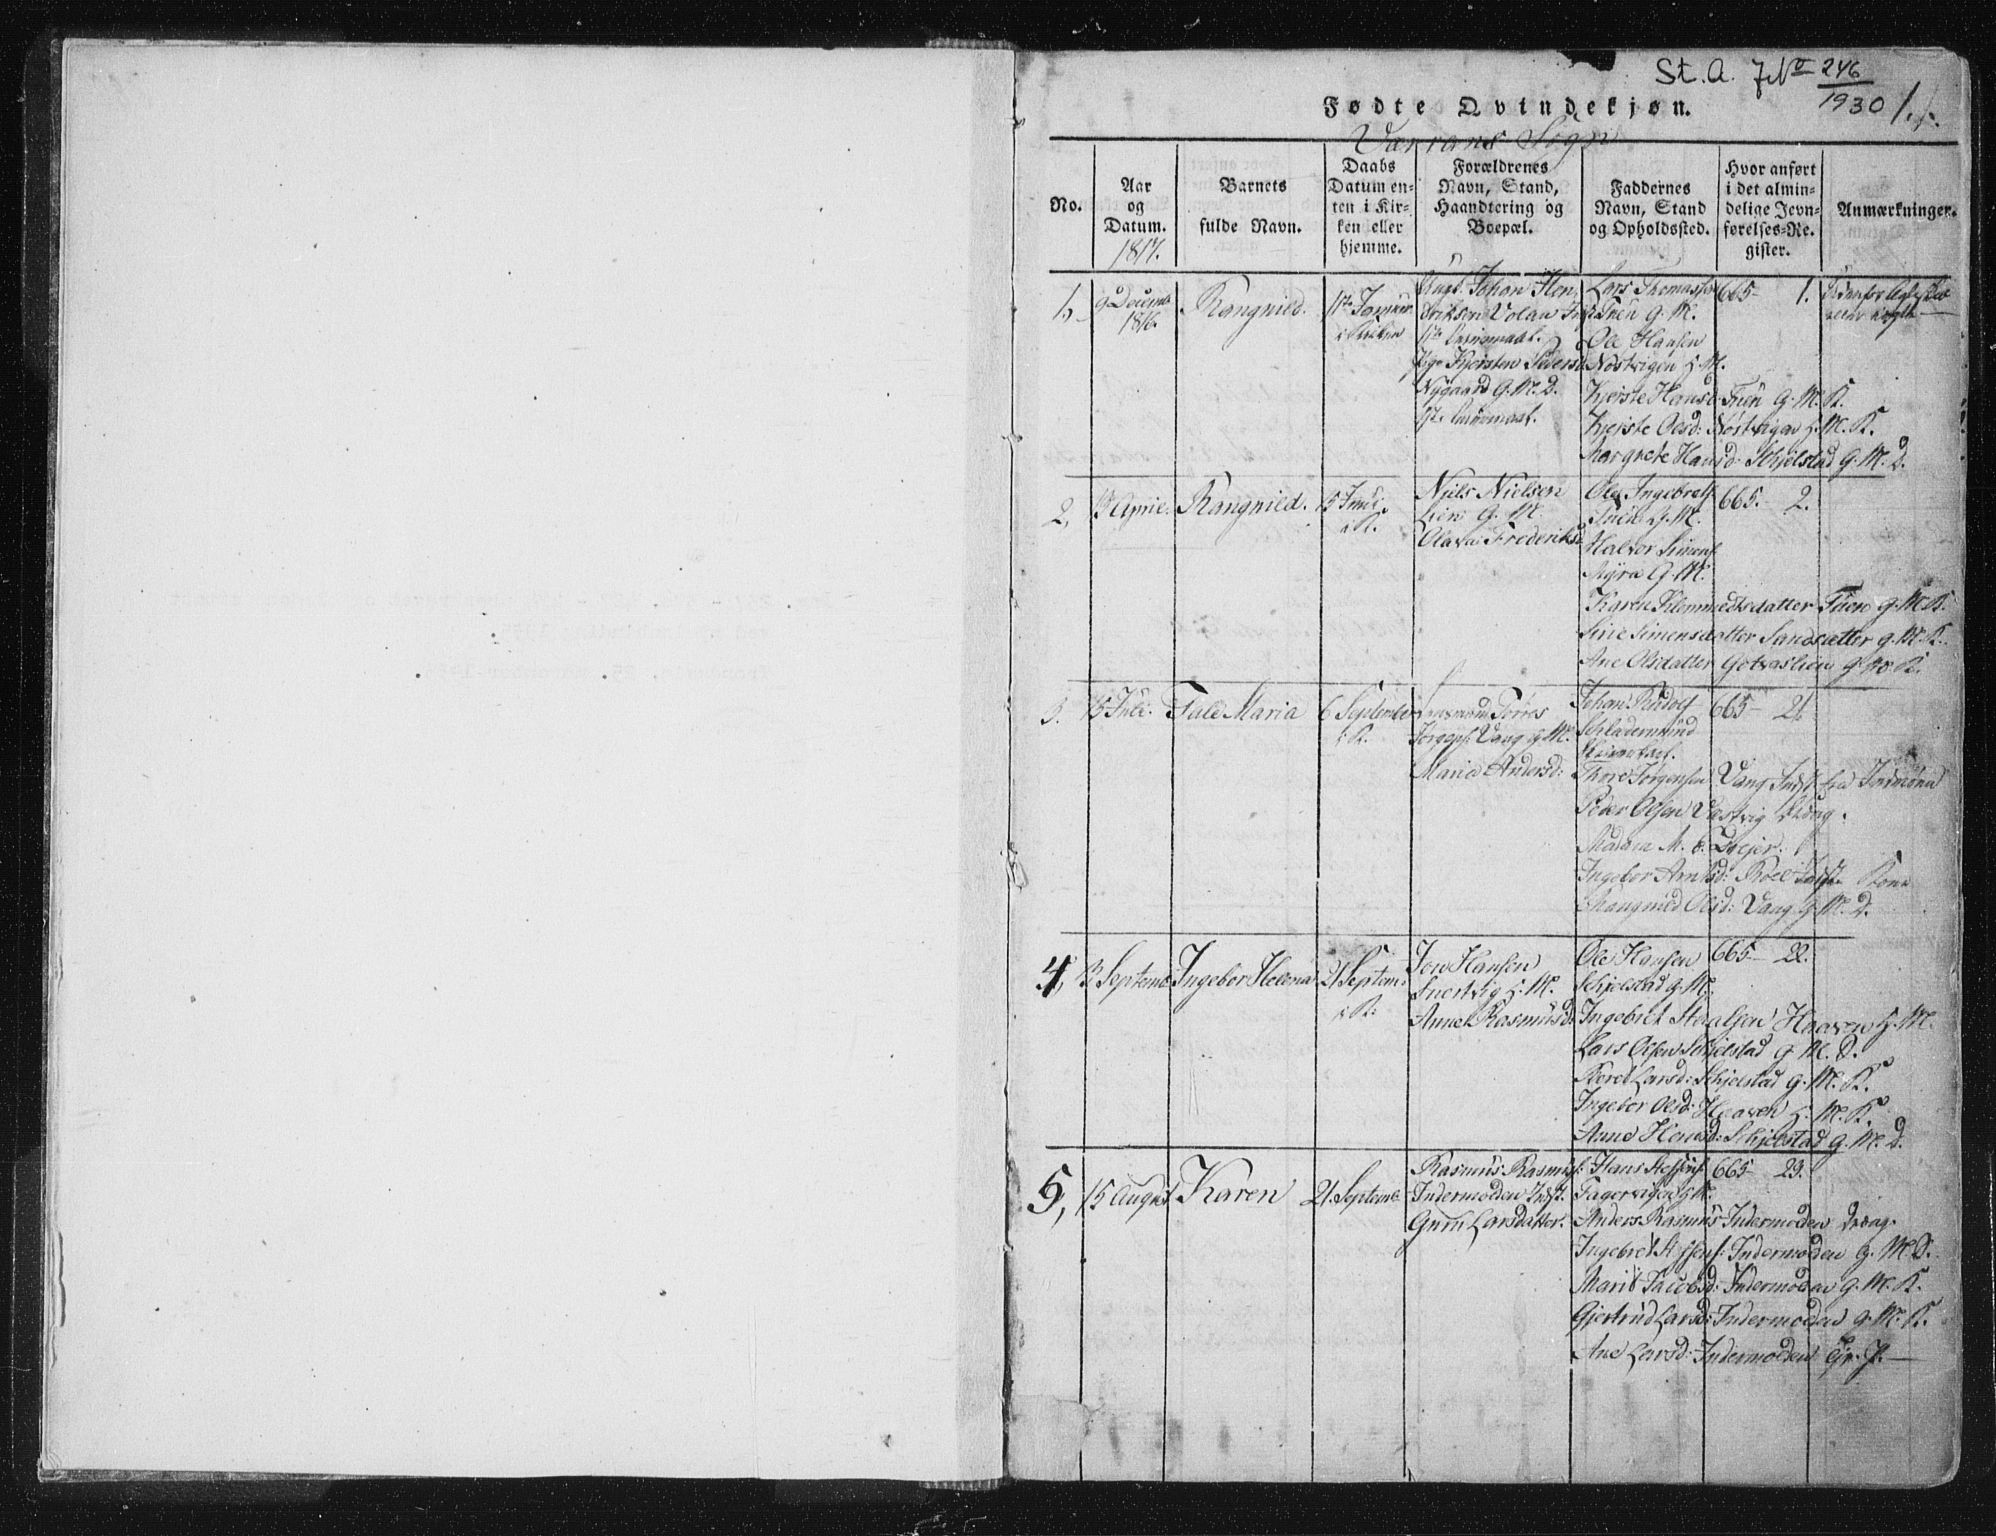 St. A. J.No 246/1930 1.
Fødte Qvindekjøn.
Værrans Sogn
No.
Aar og Datum. 1817.
Barnets fulde Navn.
Daabs Datum enten i Kirken eller hjemme.
Forældrenes Navn, Stand, Haandtering og Boepæl.
Faddernes Navn, Stand og Opholdssted.
Hvor anført i det almindelige Jevnførelses-Register.
Anmærkninger.
1.
9 Decemb. 1816.
Rangnild.
Ungk. Johan Hen
driksen Volan
Pige Kjersten
Nygaard G. M. D.
Lars Thomassen
Tuen G. M.
Ole Hansen
Nøstvigen H. M.
Kjerste Hansd. Tuen G. M. K.
Kjerste Olsd: Nøstvigen H. M. K.
Margrete Hansd. Schjelstad G. M. D.
665- 1.
2,
April.
Rangnild.
15 Juni
i K.
Niels Nielsen
Lien G. M.
Olava Frederiksd
Ole Ingebretf.
Tuen G. M.
Halvor Simens.
Myra G. M.
Karen Klemmedtsdatter Tuen G. M. K.
Sirie Simensdatter Sandsætter G. M. K.
Ane Olsdatter Getvaslien G. M. K.
665. 2.
3.
15 Juli.
Tale Maria
6 September
i K.
Torres
Jørgens: Vang G. M.
Maria Andersd:
Johan Rudolf
Schladermund
Thore Jørgensen Vang Indst. fra Inderøen
Peder Olsen Væstvig Dreng.
Madam M. E. Drejer.
Ingebor Arntsd: Koel Indst. Kone
Rangnild Olsd: Vang G. M. D.
665- 21.
4,
3 Septemb.
Ingebor Helena
21 Septem.
i K.
Jon Hansen
Tuertvig H. M.
Anne Rasmusd:
Ole Hansen
Schjelstad G. M.
Ingebret Staalsen Haaven H. M.
Lars Olsen Schjelstad G. M. S.
Beret Larsd: Schjelstad G. M. K.
Ingebor Olsd: Haaven H. M. K.
Anne Hansd: Schjelstad G. M. D.
665- 22.
5,
15 August
Karen
21. Septemb.
Rasmus Rasmusf:
Indermolden Indst.
Guru Larsdatter.
Hans Steffens.
Fagervigen G. M.
Anders Rasmus: Indermolden Dreng.
Ingebret Steffens: Indermolden G. M. S.
Marit Jacobsd: Indermolden G. M. K.
Gjertrud Larsd: Indermolden G. M. K.
Ane Larsd: Indermolden Tj. P.
665- 23.